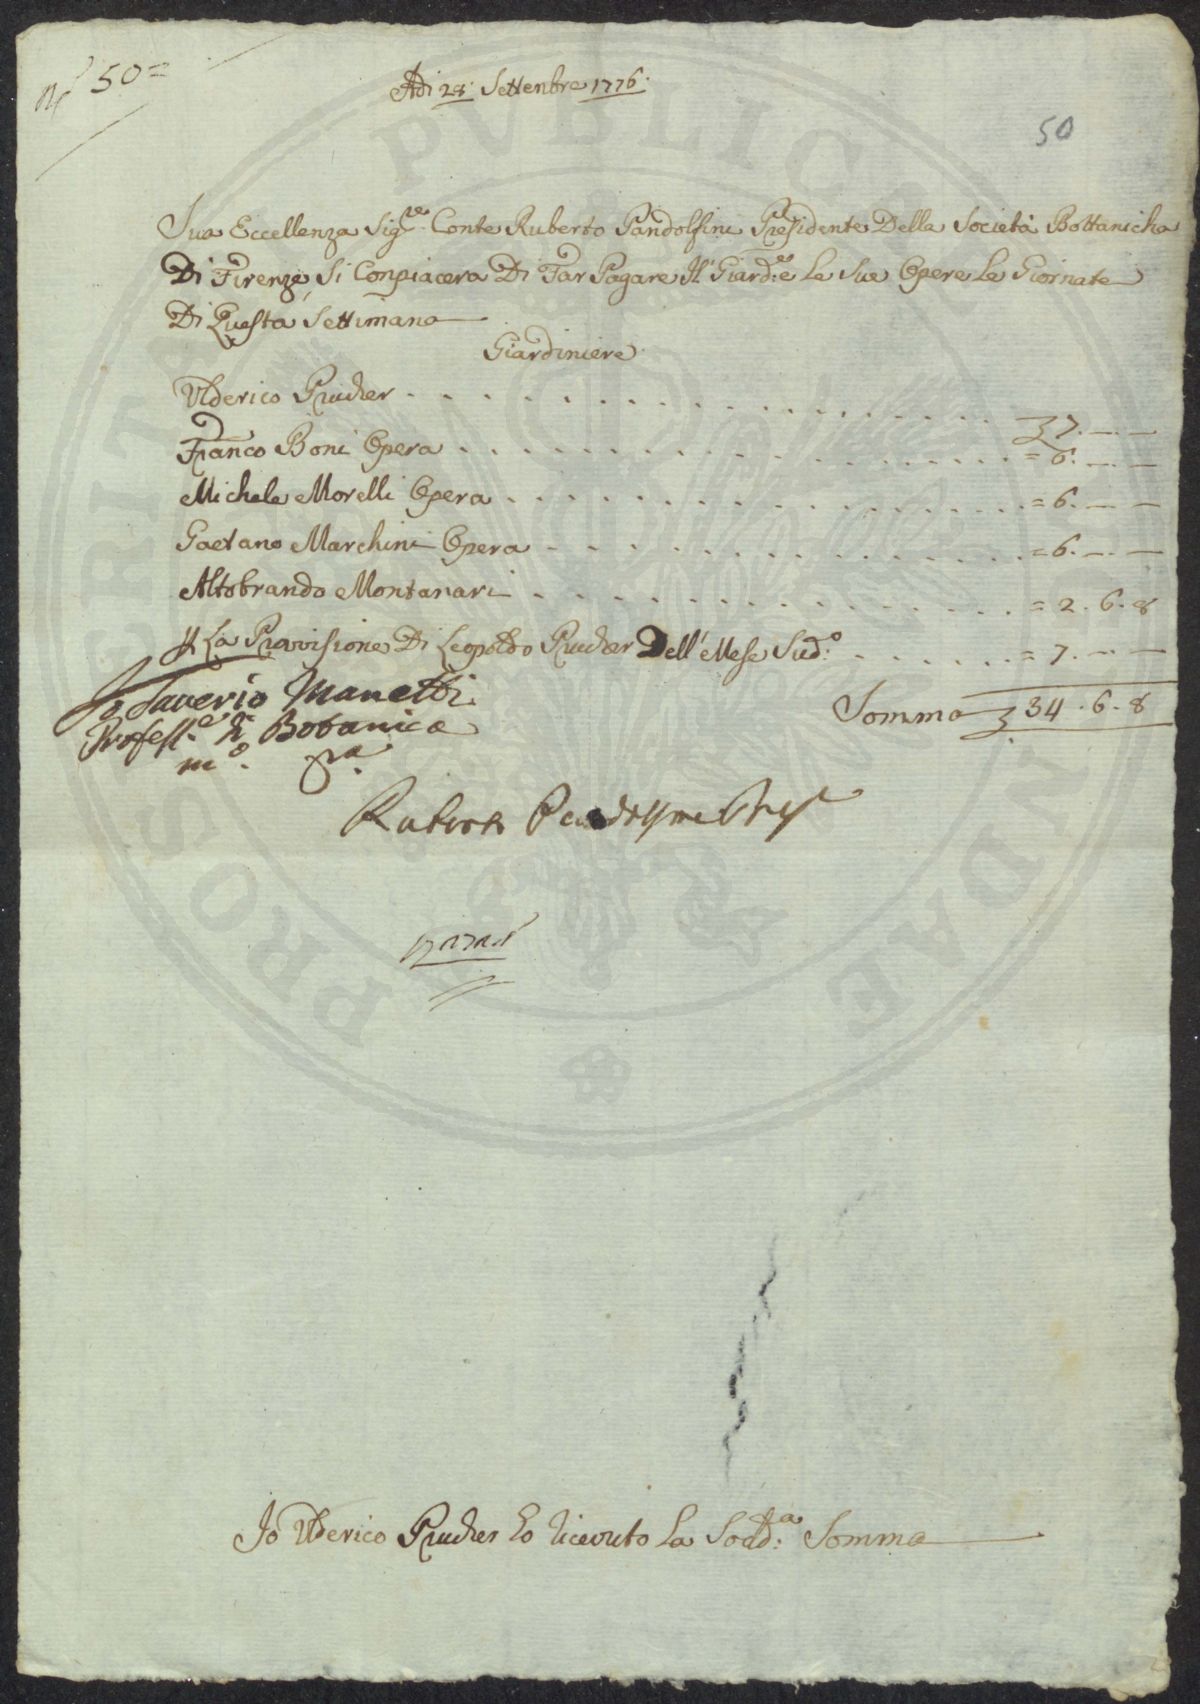 N.° 50=
Adi 28: Settenbre 1776:
50
Sua Eccellenza Sig.re Conte Ruberto Pandolfini Presidente Della Società Bottanicha
Di Firenze, Si Conpiacera Di Far Pagare Il Giard:re e le Sue Opere Le Giornate
Di Questa Settimana
Giardiniere
Ulderico Prucher . . . . . . . . . . . . . . . 7.—.—
Franco Boni Opera . . . . . . . . . . . . . . . =6.—.—
Michele Morelli Opera . . . . . . . . . . . . . . . =6.—.—
Gaetano Marchini Opera . . . . . . . . . . . . . . . =6.—.—
Altobrando Montanari . . . . . . . . . . . . . . . =2.6.8
La Provisione Di Leopoldo Prucher Dell'Mese Sud:o . . . . . . . =7.—.—
Somma 34.6.8
Io Saverio Manetti
Profess.e di Botanica
m.o pa.
Ruberto Pandolfini Pres
Io Ulderico Prucher Ho Ricevuto La Sodd:a Somma
PRO SPERITATI PVBLICAE